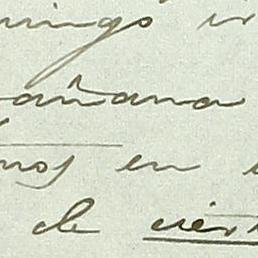 mingo
añana
mos en
de cier